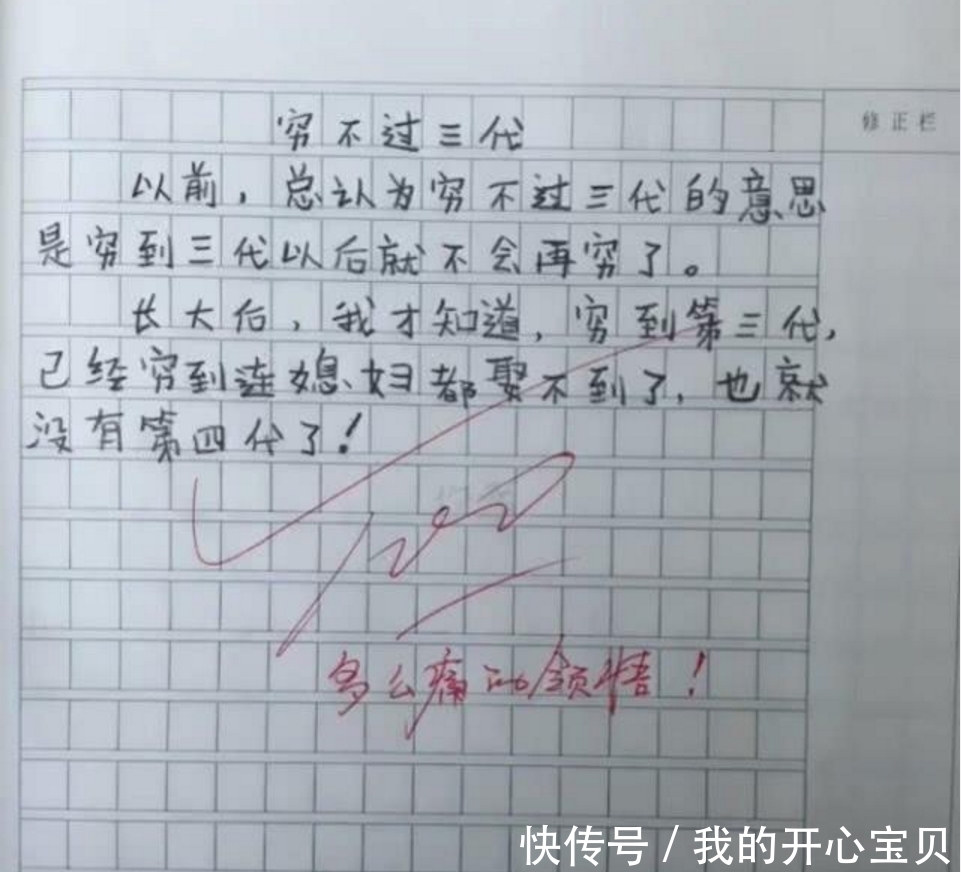 修正栏
穷不过三代
以前，总认为穷不过三代的意思
是穷到三代以后就不会再穷了。
长大后，我才知道，穷到第三代，
已经穷到连媳妇都娶不到了，也就
没有第四代了！
100
多么痛的领悟！
快传号/我的开心宝贝